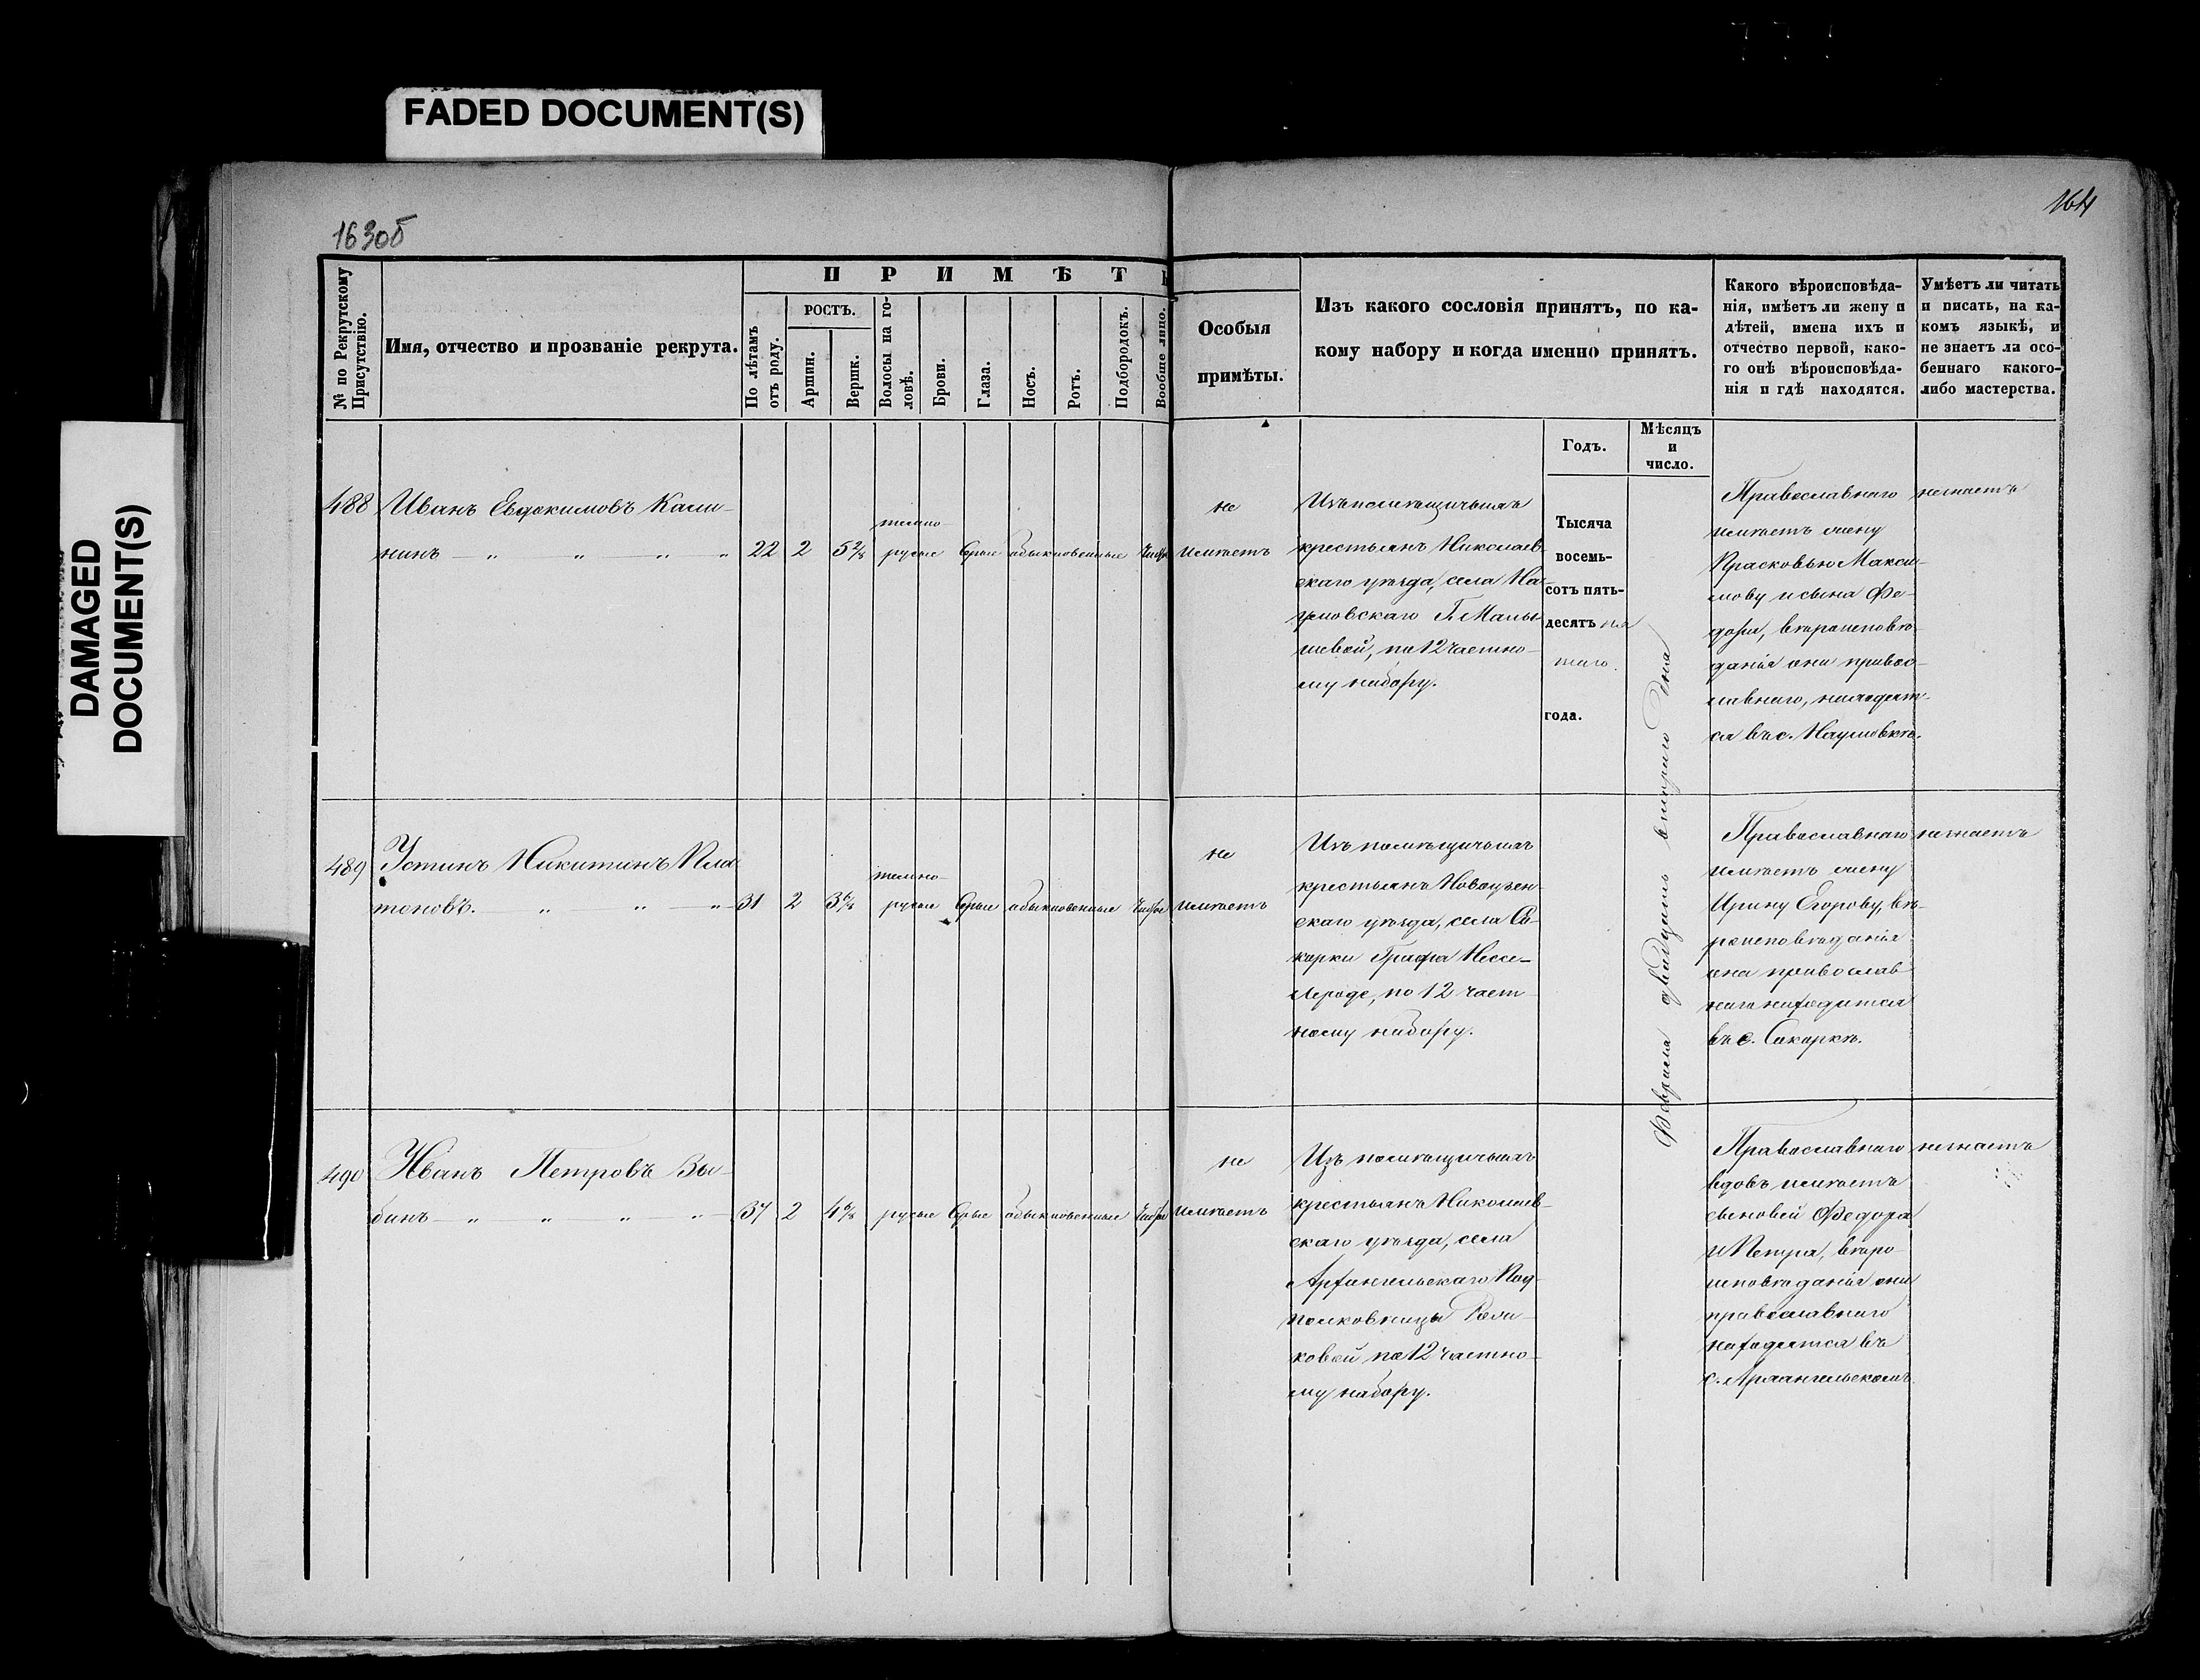 FADED DOCUMENT(S)
DAMAGED
DOCUMENT(S)
163об
164
№ по Рекрутскому
Присутствію.
Имя, отчество и прозваніе рекрута.
ПРИМѢТЫ
По лѣтамъ
отъ роду.
РОСТЪ.
Аршин.
Вершк.
Волосы на го-
ловѣ.
Брови.
Глаза.
Носъ.
Ротъ.
Подбородокъ.
Вообще лицо.
Особыя
примѣты.
Изъ какого сословія принятъ, по ка-
кому набору и когда именно принятъ.
Какого вѣроисповѣда-
нія, имѣетъ ли жену и
дѣтей, имена ихъ и
отчество первой, како-
го онѣ вѣроисповѣда-
нія и гдѣ находятся.
Умѣетъ ли читать
и писать, на ка-
комъ языкѣ, и
не знаетъ ли осо-
беннаго какого-
либо мастерства.
Годъ.
Мѣсяцъ
и
число.
488
Иванъ Евдокимовъ Кали-
нинъ — „ „ „ „
22 2 5 2/8
темно-
русые
Сѣрые
обыкновенные
Чистое
не
имѣетъ
Изъ помѣщичьихъ
крестьянъ Николаев-
скаго уѣзда, села На-
умовскаго Г. Малы-
шевой, по 12 частно-
му набору.
Тысяча
восемь-
сотъ пять-
десятъ пя
таго.
года.
Февраля двадцать втораго дня
Православнаго
имѣетъ жену
Прасковью Макси-
мову и сына Фе-
дора, вѣроисповѣ-
данія они правос-
лавнаго, находят-
ся въ с. Наумовкѣ.
незнаетъ
489
Устинъ Никитинъ Пла
тоновъ. — „ — „ — „ —
31 2 3 6/8
темно-
русые
Сѣрые
обыкновенные
Чистое
не
имѣетъ
Изъ помѣщичьихъ
крестьянъ Новоузен-
скаго уѣзда, села Са-
карки Графа Нессе-
лероде, по 12 част
ному набору.
Православнаго
имѣетъ жену
Ирину Егорову, вѣ-
роисповѣданія
она православ
наго находится
въ с. Сакаркѣ.
незнаетъ
490
Иванъ Петровъ Зы-
бинъ — „ — „ — „ — „ —
37 2 4 6/8
русые
Сѣрые
обыкновенные
Чистое
не
имѣетъ
Изъ помѣщичьихъ
крестьянъ Николаев-
скаго уѣзда, села
Архангельскаго Под-
полковницы
ковой по 12 частно-
му набору.
Православнаго
вдовъ имѣетъ
сыновей Федора
и Петра, вѣро-
исповѣданія они
православнаго
находятся въ
с. Архангельскомъ.
незнаетъ